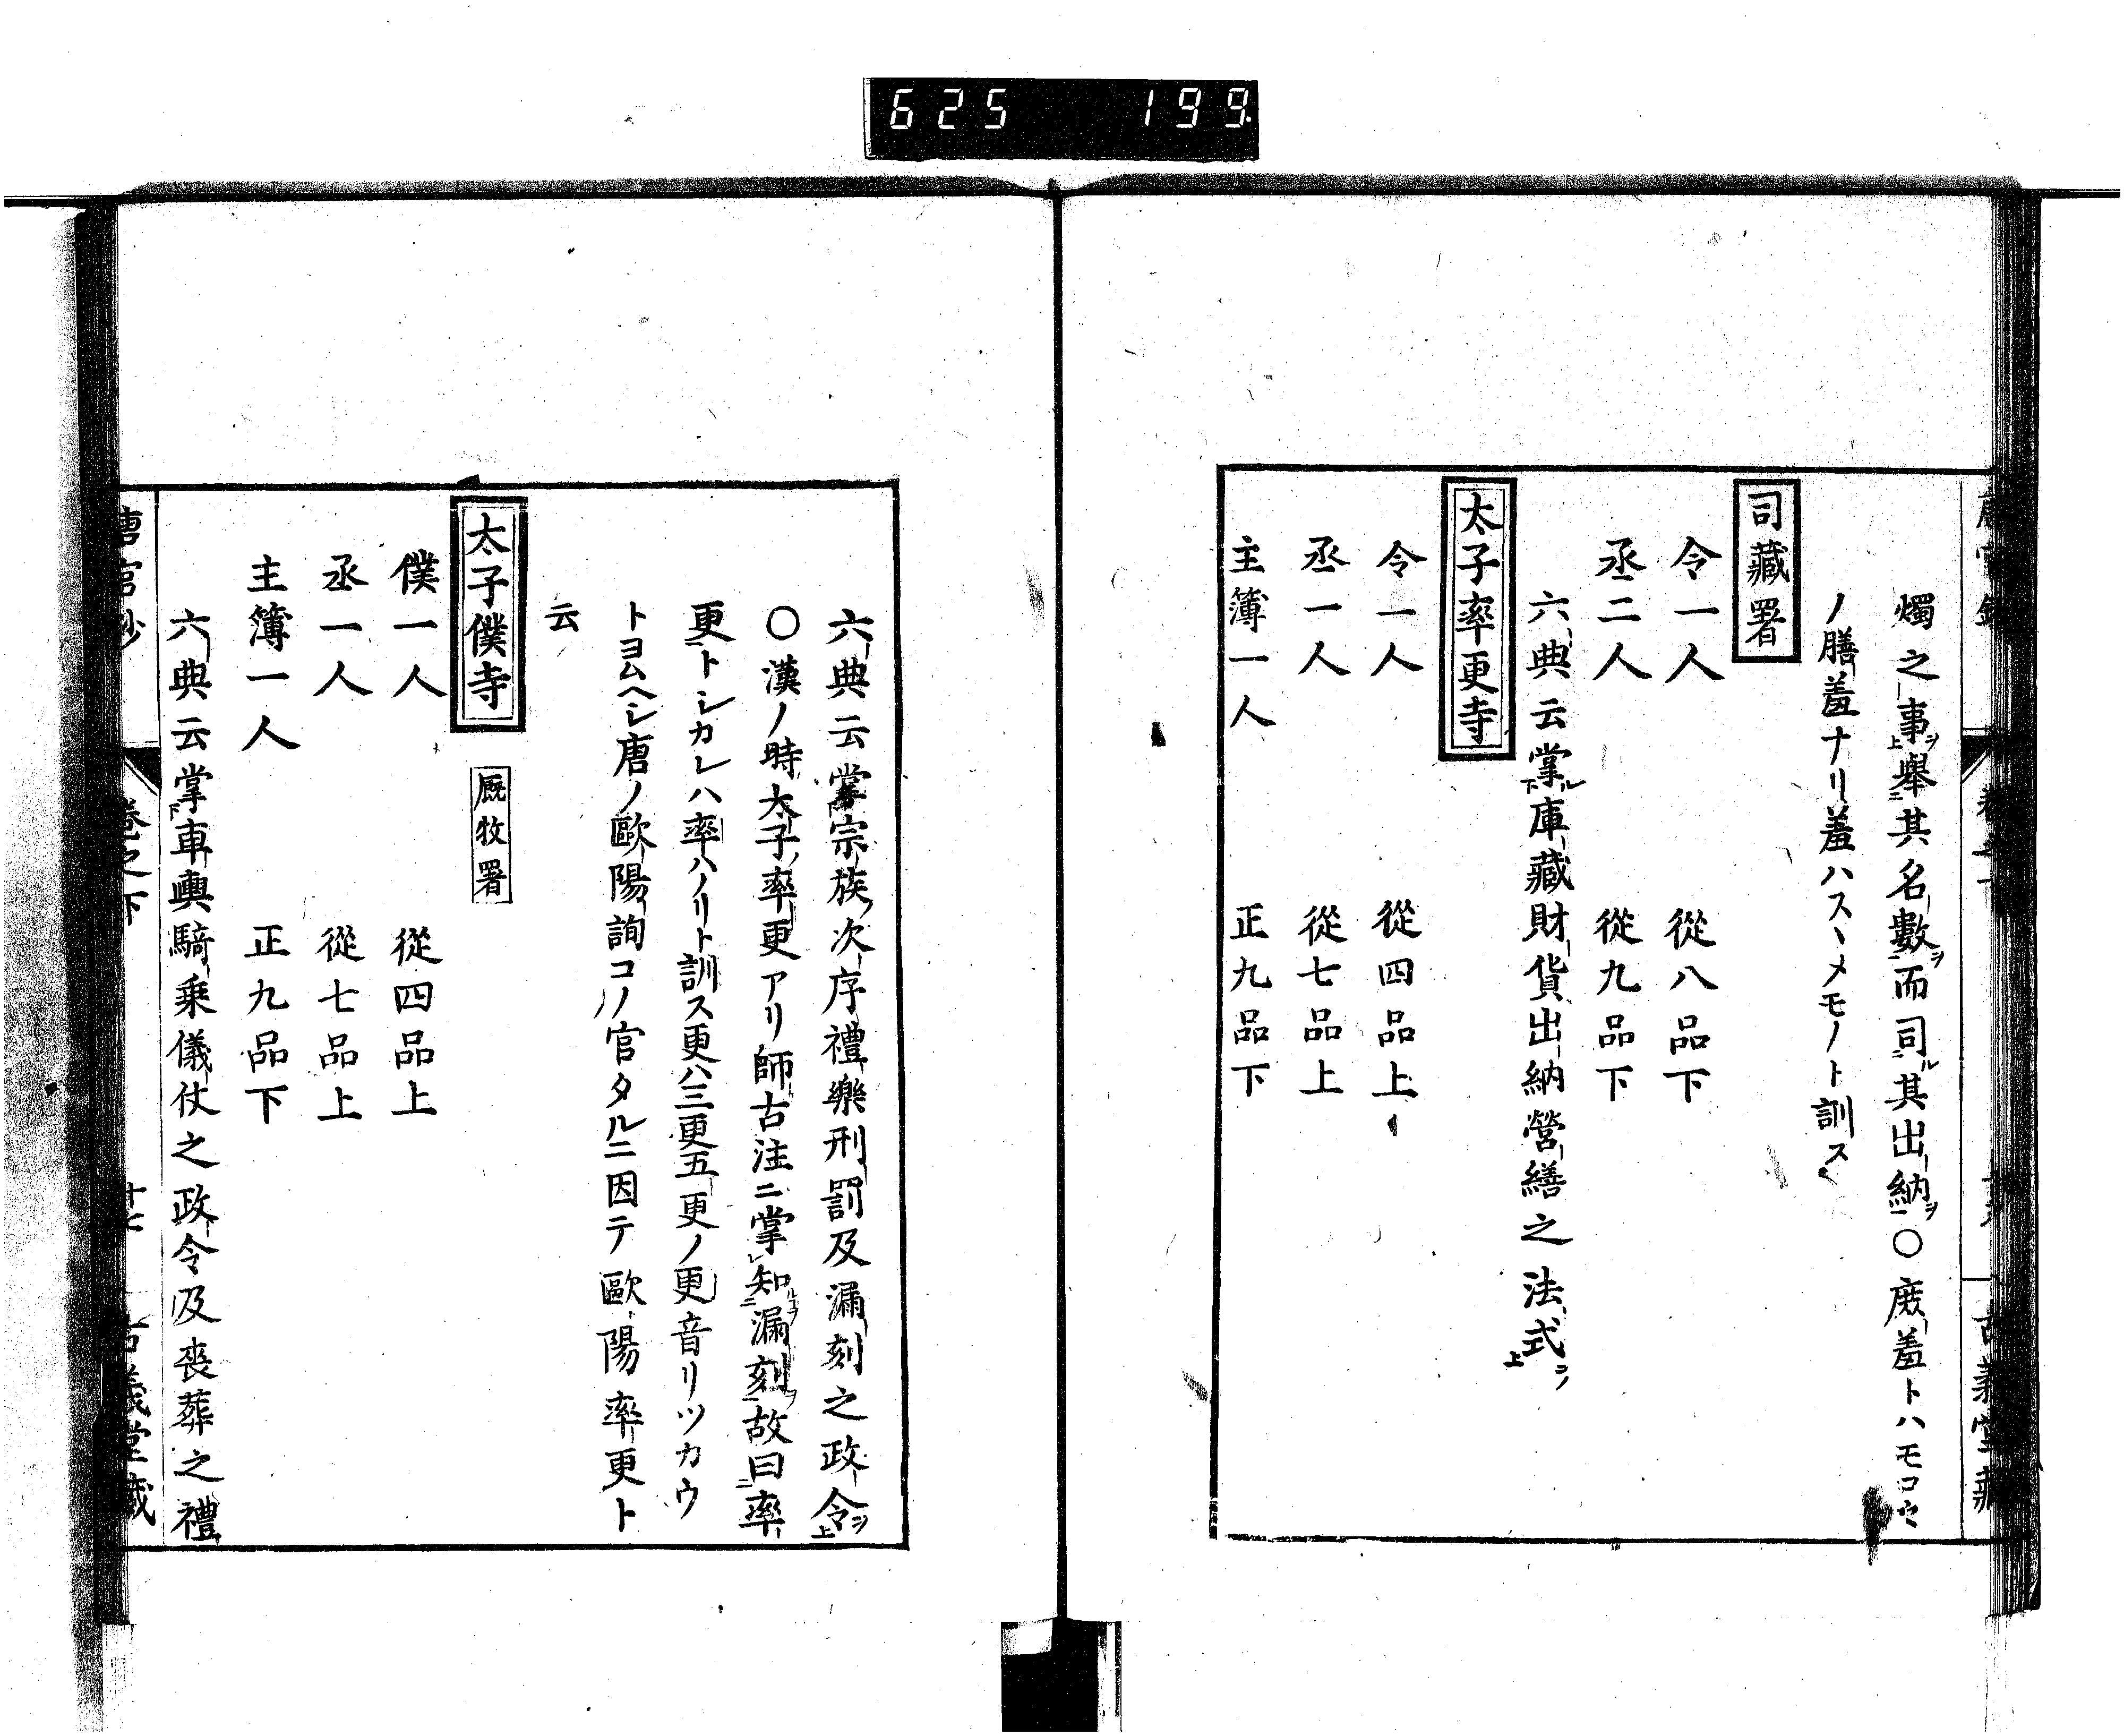 625 199
燭之事擧其名數而司其出納○庶羞トハモロ〱
ノ膳羞ナリ羞ハスヽメモノト訓ス
司藏署
令一人 從八品下
丞二人 從九品下
六典云掌庫藏財貨出納營繕之法式
太子率更寺
令一人 從四品上
丞一人 從七品上
主簿一人 正九品下
六典云掌宗族次序禮樂刑罰及漏刻之政令
○漢ノ時太子率更アリ師古注ニ掌知漏刻故曰率
更トシカレハ率ハノリト訓ス更ハ三更五更ノ更音リツカウ
トヨムヘシ唐ノ歐陽詢コノ官タルニ因テ歐陽率更ト
云
太子僕寺 厩牧署
僕一人 從四品上
丞一人 從七品上
主簿一人 正九品下
六典云掌車輿騎乘儀仗之政令及喪葬之禮
唐官鈔 卷之下 十七 古義堂藏